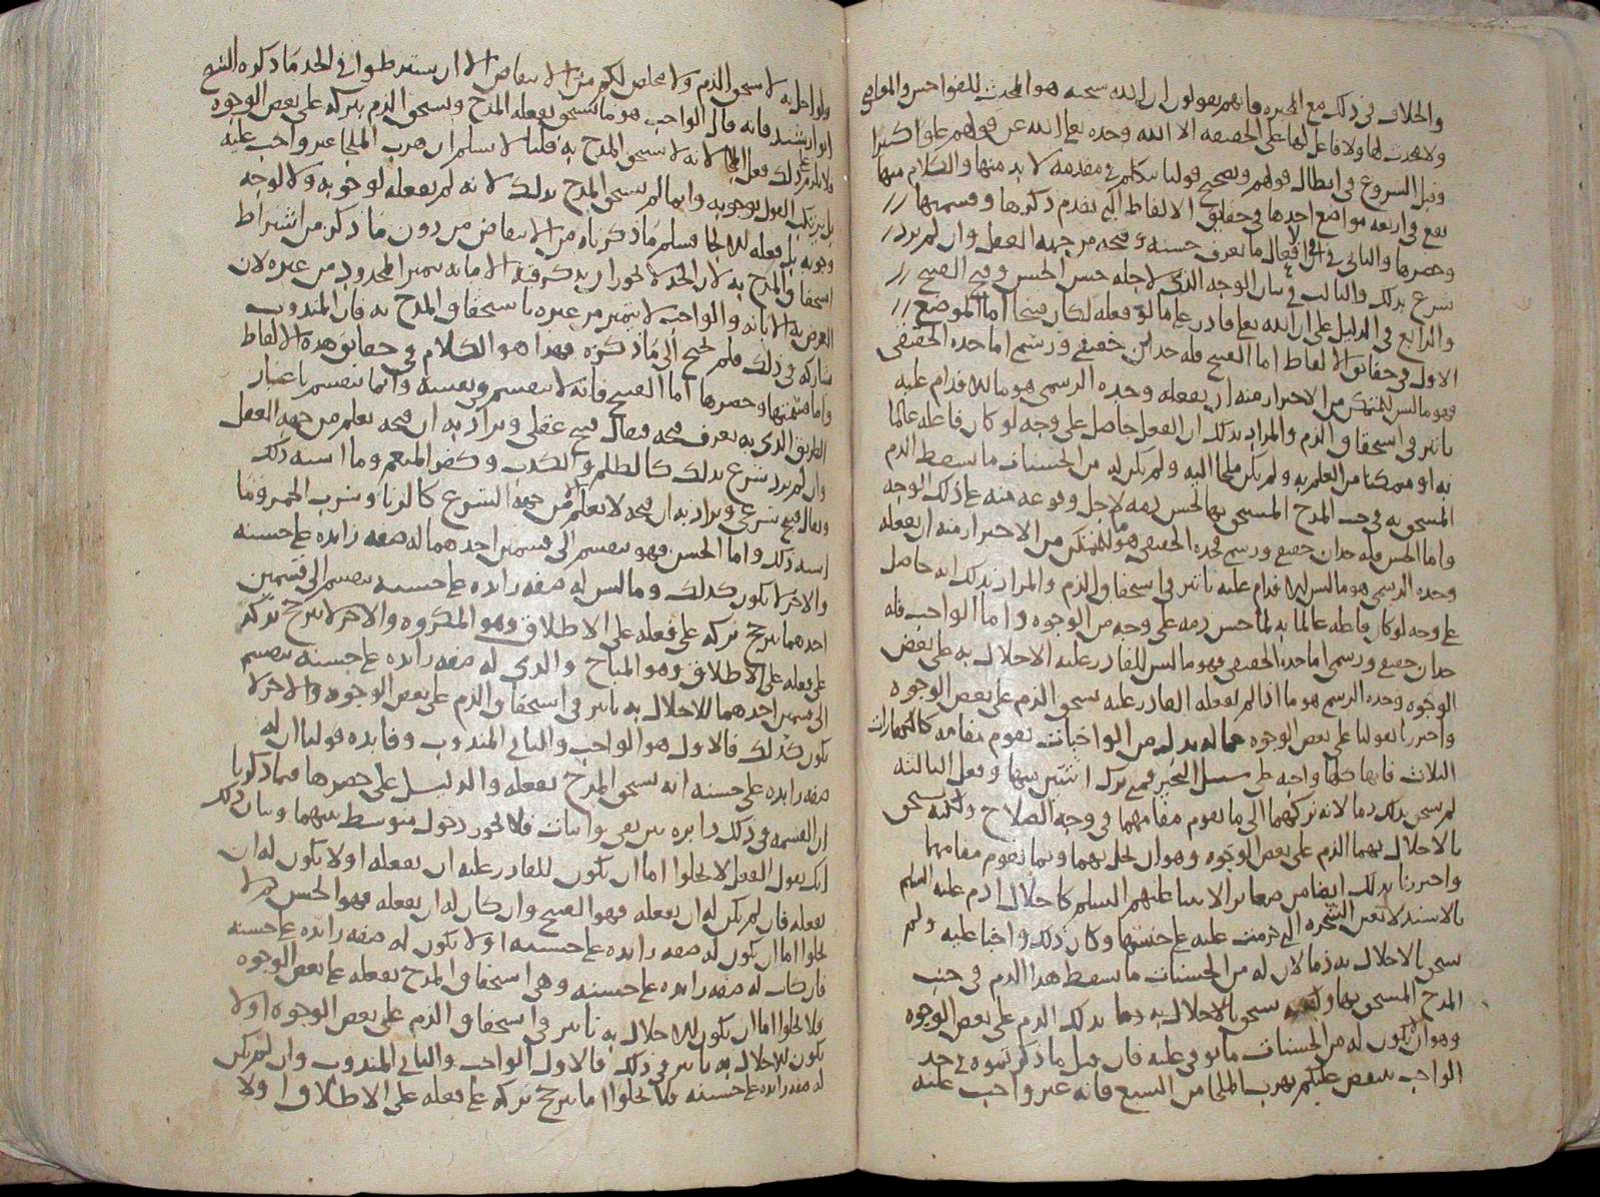 والخلاف في ذلك مع المجبره فانهم يقولون ان الله سبحنه هو المحدث للفواحش والمعاصي
ولا محدث لها ولا فاعل لها على الحقيقه الا الله وحده تعالى الله عن قولهم علوا كبيرا
وقبل الشروع في ابطال قولهم وتصحيح قولنا نتكلم في مقدمه لا بد منها والكلام منها
يقع في اربعه مواضع احدها في حقايق الالفاظ التي تقدم ذكرها وقسمتها
وحصرها والثاني في ان في الافعال ما يعرف حسنه وقبحه من جهه العقل وان لم يرد
شرع بذلك والثالث في بيان الوجه الذي لاجله حسن الحسن وقبح القبيح
والرابع في الدليل على ان الله تعالى قادر على ما لو فعله لكان قبيحا اما الموضع
الاول في حقايق الالفاظ اما القبيح فله حدان حقيقي ورسمي اما حده الحقيقي
فهو ما ليس للمتمكن من الاحتراز منه ان يفعله وحده الرسمي هو ما للاقدام عليه
تاثير في استحقاق الذم والمراد بذلك ان الفعل حاصل على وجه لو كان فاعله عالما
به او متمكنا من العلم به ولم يكن ملجا اليه ولم يكن له من الحسنات ما يسقط الذم
المستحق به في جنب المدح المستحق بها لحسن ذمه لاجل وقوعه منه على ذلك الوجه
واما الحسن فله حدان حقيقي ورسمي فحده الحقيقي هو ما للمتمكن من الاحتراز منه ان يفعله
وحده الرسمي هو ما ليس للاقدام عليه تاثير في استحقاق الذم والمراد بذلك انه حاصل
على وجه لو كان فاعله عالما به لما حسن ذمه على وجه من الوجوه واما الواجب فله
حدان حقيقي ورسمي اما حده الحقيقي فهو ما ليس للقادر عليه الاخلال به على بعض
الوجوه وحده الرسمي هو ما اذا لم يفعله القادر عليه استحق الذم على بعض الوجوه
واحترزنا بقولنا على بعض الوجوه عما له بدل من الواجبات يقوم مقامه كالكفارات
الثلاث فانها كلها واجبه على سبيل التخيير فمتى ترك اثنتين منها وفعل الثالثه
لم يستحق بذلك ذما لانه تركهما الى ما يقوم مقامهما في وجه الصلاح ولكنه يستحق
بالاخلال بهما الذم على بعض الوجوه وهو ان يخل بهما وبما يقوم مقامهما
واحترزنا بذلك ايضا من صغاير الانبيا عليهم السلم كاخلال ادم عليه السلم
بالاستدلال بعين الشجره التي حرمت عليه على جنسها وكان ذلك واجبا عليه ولم
يستحق بالاخلال به ذما لان له من الحسنات ما يسقط هذا الذم في جنب
المدح المستحق بها ولكنه يستحق بالاخلال به ذما بذلك الذم على بعض الوجوه
وهو ان لا يكون له من الحسنات ما يوفي عليه فان قيل ما ذكرتموه في حد
الواجب ينتقض عليكم بهرب الملجا من السبع فانه غير واجب عليه
ولو اخل به لا يستحق الذم ولا مخلص لكم من الانتقاض الا ان تشترطوا في الحد ما ذكره الشيخ
ابو رشيد فانه قال الواجب هو ما يستحق بفعله المدح ويستحق الذم بتركه على بعض الوجوه
فلا يلزم على ذلك فعل الملجا لانه لا يستحق المدح به قلنا لا نسلم ان هرب الملجا غير واجب عليه
بل نرتكب القول بوجوبه وانما لم يستحق المدح بذلك لانه لم يفعله لوجوبه ولا لوجه
وجوبه بل فعله للالجا فسلم ما ذكرناه من الانتقاض من دون ما ذكر من اشتراط
استحقاق المدح به لان الحد لا يجوز ان يذكر فيه الا ما به يتميز المحدود من غيره لان
الغرض به الابانه والواجب لا يتميز من غيره باستحقاق المدح به فان المندوب
شاركه في ذلك فلم يحتج الى ما ذكره فهذا هو الكلام في حقايق هذه الالفاظ
واما قسمتها وحصرها اما القبيح فانه لا ينقسم في نفسه وانما ينقسم باعتبار
الطريق الذي به يعرف قبحه فيقال قبيح عقلي ويراد به ان قبحه يعلم من جهه العقل
وان لم يرد شرع بذلك كالظلم والكذب وكفر المنعم وما اشبه ذلك
ويقال قبيح شرعي ويراد به ان قبحه لا يعلم الا من جهه الشرع كالزنا وشرب الخمر وما
اشبه ذلك واما الحسن فهو ينقسم الى قسمين احدهما له صفه زايده على حسنه
والاخر لا يكون كذلك وما ليس له صفه زايده على حسنه ينقسم الى قسمين
احدهما يترجح تركه على فعله على الاطلاق وهو المكروه والاخر لا يترجح تركه
على فعله على الاطلاق وهو المباح والذي له صفه زايده على حسنه ينقسم
الى قسمين احدهما للاخلال به تاثير في استحقاق الذم على بعض الوجوه والاخر لا
يكون كذلك فالاول هو الواجب والثاني المندوب وفايده قولنا ان له
صفه زايده على حسنه انه يستحق المدح بفعله والدليل على حصرها فيما ذكرنا
ان القسمه في ذلك دايره بين نفي واثبات فلا يجوز دخول متوسط بينهما وبيان ذلك
انك تقول الفعل لا يخلوا اما ان يكون للقادر عليه ان يفعله او لا يكون له ان
يفعله فان لم يكن له ان يفعله فهو القبيح وان كان له ان يفعله فهو الحسن ثم لا
يخلوا اما ان يكون له صفه زايده على حسنه او لا يكون له صفه زايده على حسنه
فان كان له صفه زايده على حسنه وهي استحقاق المدح بفعله على بعض الوجوه
فلا يخلوا اما ان يكون للاخلال به تاثير في استحقاق الذم على بعض الوجوه او لا
يكون للاخلال به تاثير في ذلك فالاول الواجب والثاني المندوب وان لم يكن
له صفه زايده على حسنه فلا يخلوا اما يترجح تركه على فعله على الاطلاق او لا